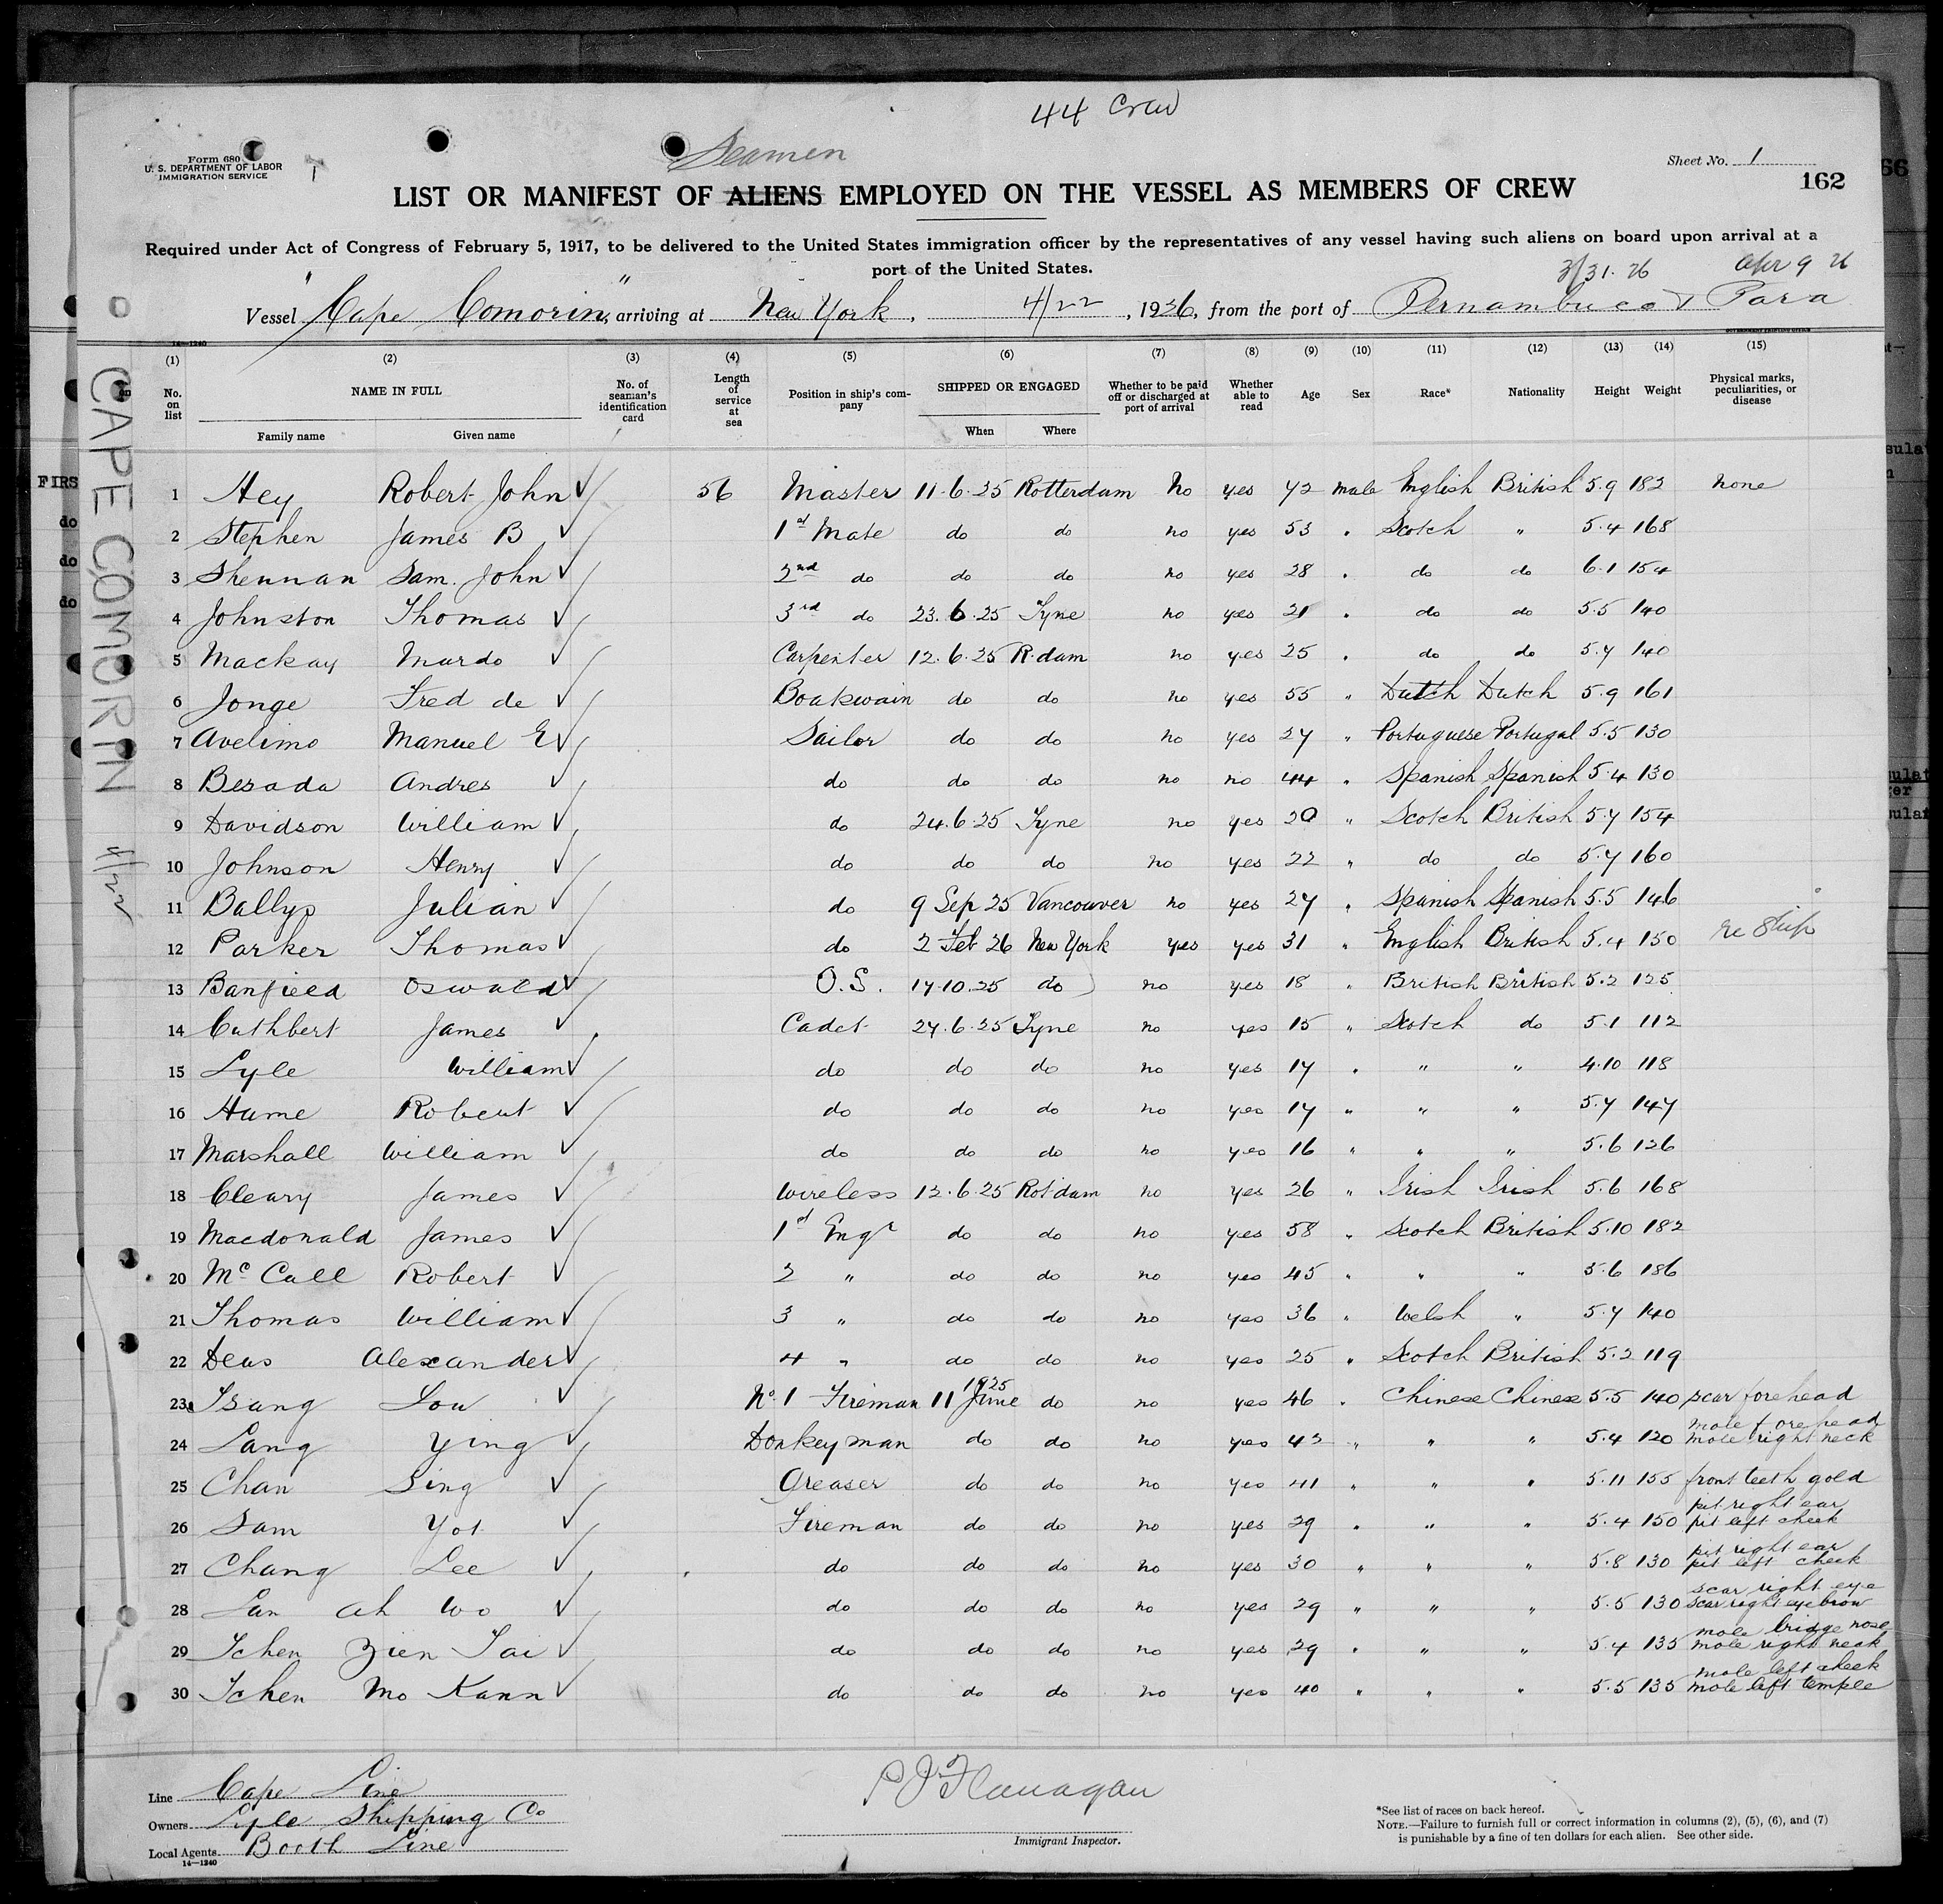 44 Crew
Seamen
Form 680
U. S. DEPARTMENT OF LABOR
IMMIGRATION SERVICE
Sheet No. 1
162
LIST OR MANIFEST OF ALIENS EMPLOYED ON THE VESSEL AS MEMBERS OF CREW
Required under Act of Congress of February 5, 1917, to be delivered to the United States immigration officer by the representatives of any vessel having such aliens on board upon arrival at a
port of the United States.
3/31. 26 Apr 9 26
Vessel "Cape Comorin", arriving at New York, 4/22, 1926, from the port of Pernambuco & Para
14—1240
(1) (2) (3) (4) (5) (6) (7) (8) (9) (10) (11) (12) (13) (14) (15)
No. on list NAME IN FULL No. of seaman's identification card Length of service at sea Position in ship's company SHIPPED OR ENGAGED Whether to be paid off or discharged at port of arrival Whether able to read Age Sex Race* Nationality Height Weight Physical marks, peculiarities, or disease
Family name Given name When Where
1 Hey Robert John 56 Master 11.6.25 Rotterdam No yes 72 male English British 5.9 182 none
2 Stephen James B 1st Mate do do no yes 53 " Scotch " 5.4 168
3 Shennan Sam. John 2nd do do do no yes 28 " do do 6.1 154
4 Johnston Thomas 3rd do 23.6.25 Tyne no yes 21 " do do 5.5 140
5 Mackay Murdo Carpenter 12.6.25 R.dam no yes 25 " do do 5.7 140
6 Jonge Fred de Boatswain do do no yes 55 " Dutch Dutch 5.9 161
7 Avelimo Manuel E Sailor do do no yes 27 " Portuguese Portugal 5.5 130
8 Besada Andres do do do no no 44 " Spanish Spanish 5.4 130
9 Davidson William do 24.6.25 Tyne no yes 20 " Scotch British 5.7 154
10 Johnson Henry do do do no yes 22 " do do 5.7 160
11 Ballys Julian do 9 Sep 25 Vancouver no yes 27 " Spanish Spanish 5.5 146
12 Parker Thomas do 2 Feb 26 New York yes yes 31 " English British 5.4 150 re Ship
13 Banfield Oswald O.S. 17.10.25 do no yes 18 " British British 5.2 125
14 Cuthbert James Cadet 27.6.25 Tyne no yes 15 " Scotch do 5.1 112
15 Lyle William do do do no yes 17 " " " 4.10 118
16 Hume Robert do do do no yes 17 " " " 5.7 147
17 Marshall William do do do no yes 16 " " " 5.6 126
18 Cleary James Wireless 12.6.25 Rot'dam no yes 26 " Irish Irish 5.6 168
19 Macdonald James 1st Engr do do no yes 58 " Scotch British 5.10 182
20 McCall Robert 2 " do do no yes 45 " " " 5.6 186
21 Thomas William 3 " do do no yes 36 " Welsh " 5.7 140
22 Deas Alexander 4 " do do no yes 25 " Scotch British 5.2 119
23 Tsang Lou No. 1 Fireman 11 June 1925 do no yes 46 " Chinese Chinese 5.5 140 scar forehead
24 Lang Ying Donkeyman do do no yes 42 " " " 5.4 120 mole forehead mole right neck
25 Chan Sing Greaser do do no yes 41 " " " 5.11 155 front teeth gold
26 Sam Yot Fireman do do no yes 29 " " " 5.4 150 pit right ear pit left cheek
27 Chang Lee do do do no yes 30 " " " 5.8 130 pit right ear pit left cheek
28 Lan ah Wo do do do no yes 29 " " " 5.5 130 scar right eye scar right eyebrow
29 Tchen Zien Tai do do do no yes 29 " " " 5.4 135 mole bridge nose mole right neck
30 Tchen Mo Kann do do do no yes 40 " " " 5.5 135 mole left cheek mole left temple
CAPE COMORIN 4/22
Line Cape Line
Owners Lyle Shipping Co
Local Agents Booth Line
14—1240
P J Flanagan
Immigrant Inspector.
*See list of races on back hereof.
NOTE.—Failure to furnish full or correct information in columns (2), (5), (6), and (7)
is punishable by a fine of ten dollars for each alien. See other side.